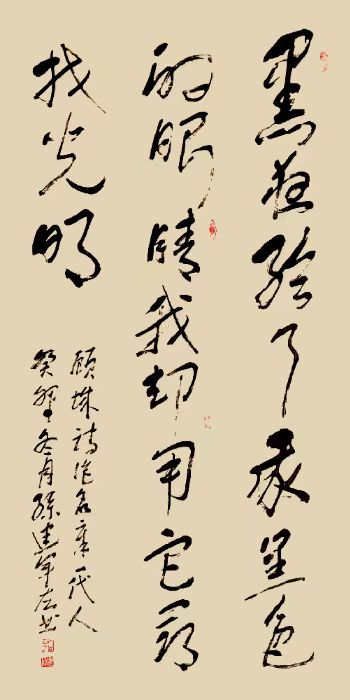 黑夜给了我黑色
的眼睛我却用它寻
找光明
顾城诗作名章一代人
癸卯冬月孫建軍左书